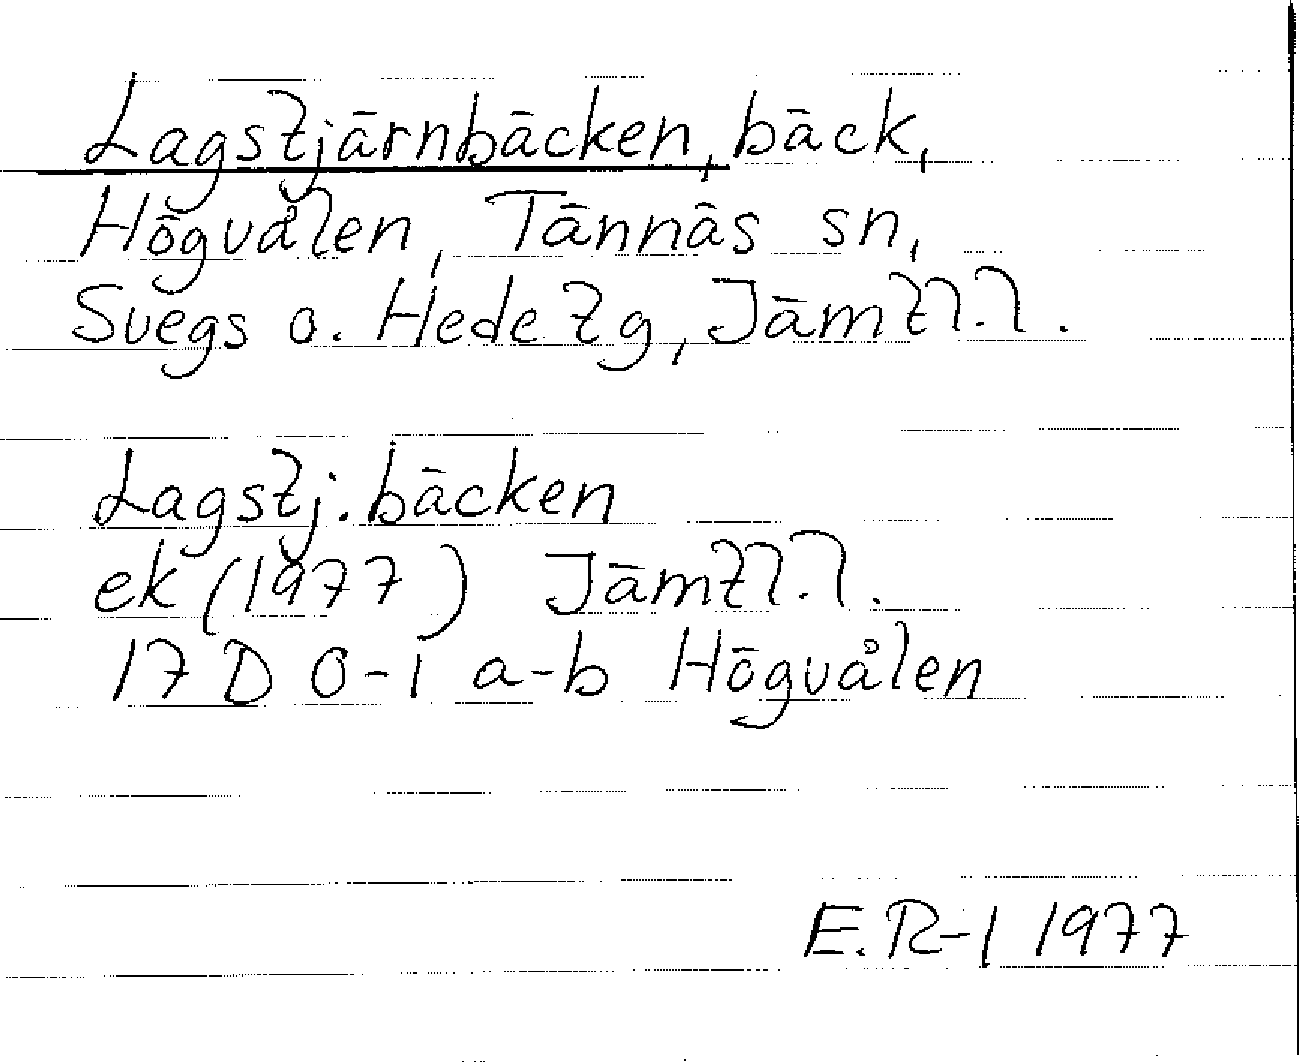 Lagstjärnbäcken, bäck,
Högvålen, Tännäs sn,
Svegs o. Hede tg, Jämtl.l.
Lagstj.bäcken
ek (1977) Jämtl.l.
17 D 0-1 a-b Högvålen
E.R-l 1977